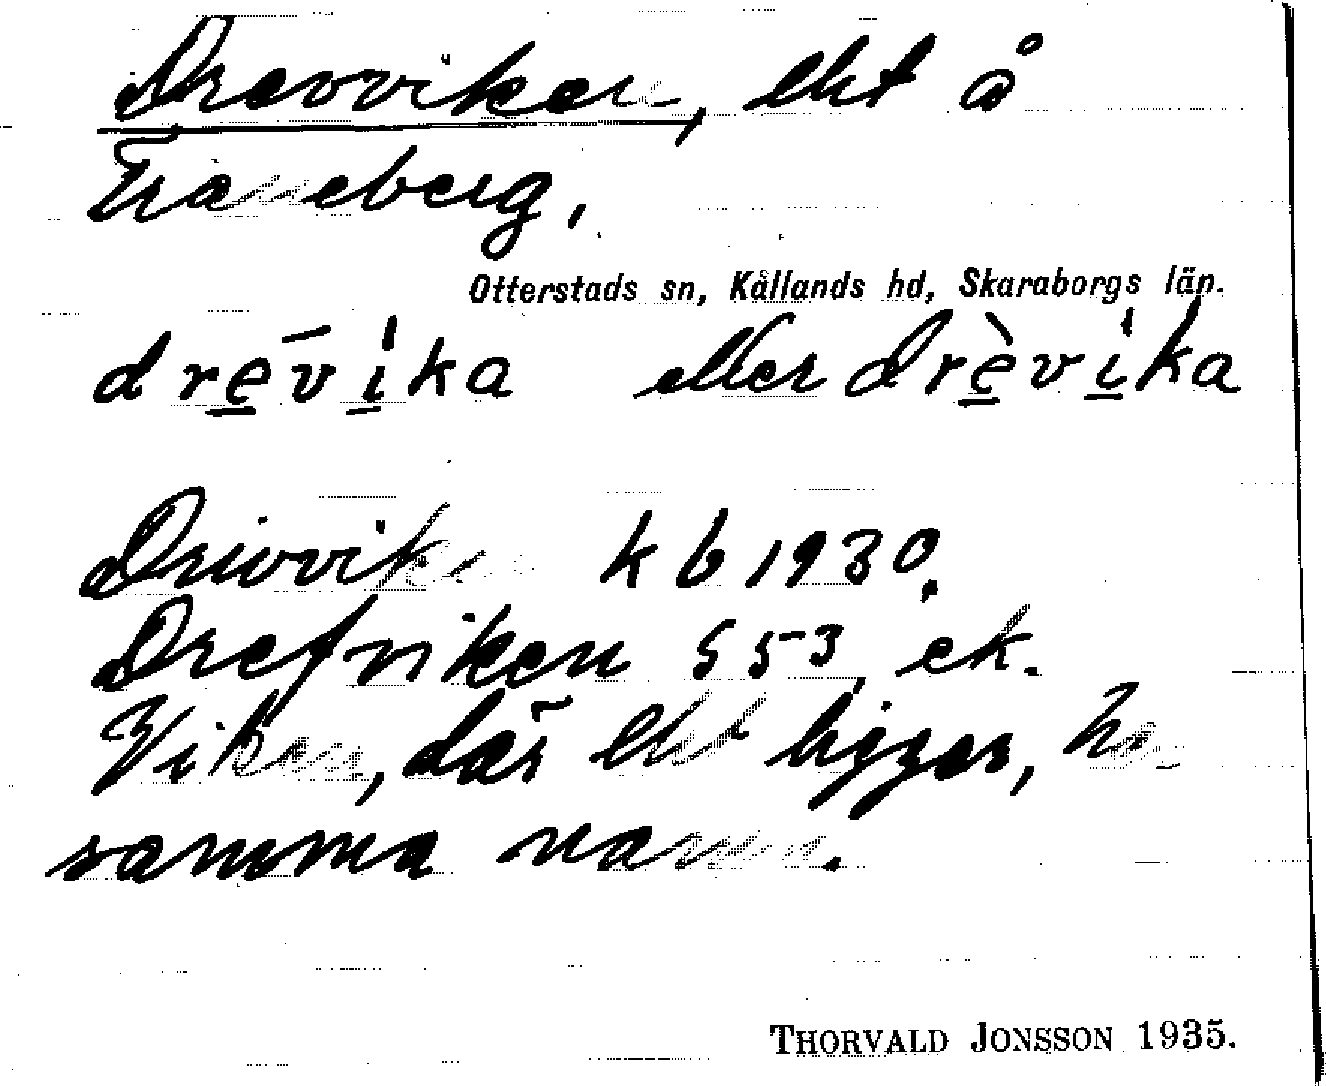 Drevviken, lht å
Traneberg.
Otterstads sn, Kållands hd, Skaraborgs län.
drēvi̍ka eller drèvi̍ka
Drivviken kb 1930.
Drefviken S 53 ek.
Viken, där lht ligger, har
samma namn.
THORVALD JONSSON 1935.